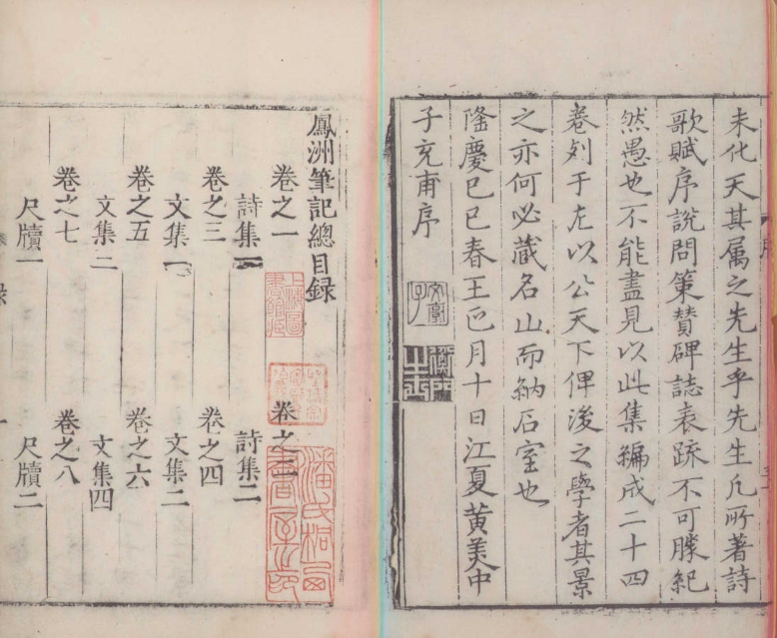 未化天其属之先生乎先生凡所著詩
歌賦序說問策贊碑誌表跡不可勝紀
然愚也不能盡見以此集編成二十四
卷列于左以公天下俾後之學者其景
之亦何必藏名山而納石室也
隆慶己巳春王正月十日江夏黃美中
子充甫序
鳳洲筆記總目録
卷之一
卷之二
詩集一
詩集二
卷之三
卷之四
文集一
文集二
卷之五
卷之六
文集三
文集四
卷之七
卷之八
尺牘一
尺牘二